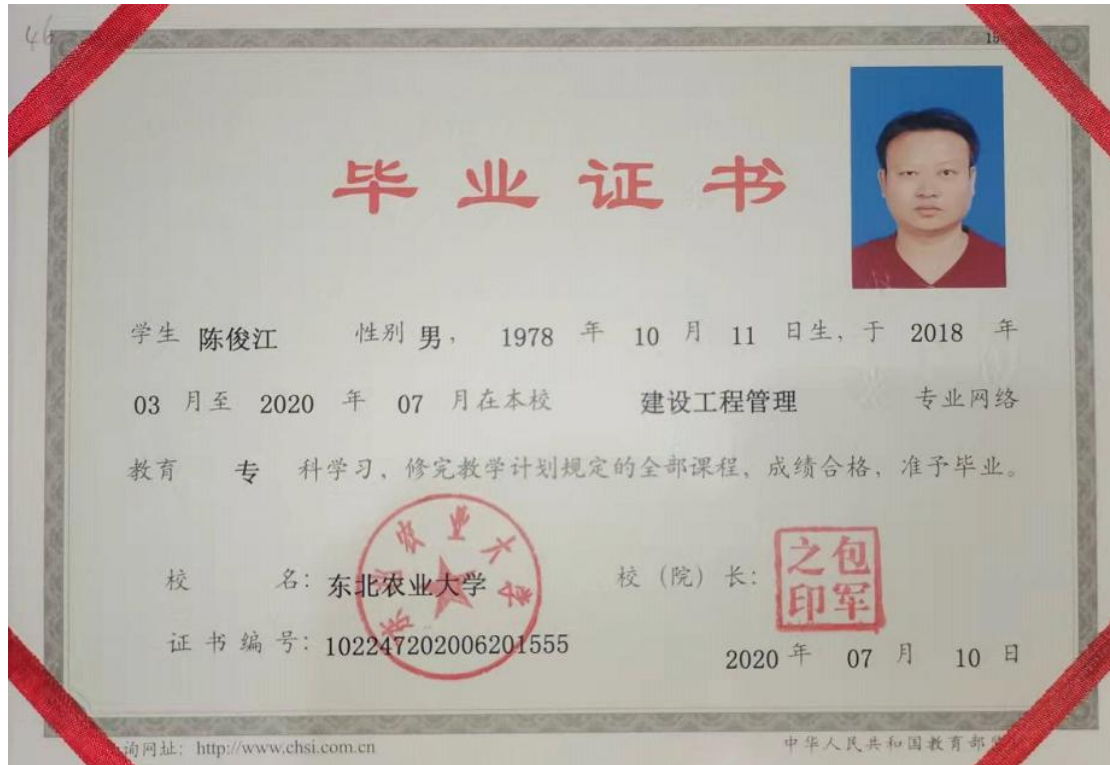 46
毕业证书
学生 陈俊江 性别 男, 1978 年 10 月 11 日生, 于 2018 年
03 月至 2020 年 07 月在本校 建设工程管理 专业网络
教育 专 科学习, 修完教学计划规定的全部课程, 成绩合格, 准予毕业。
东北农业大学
校 名: 东北农业大学 校 (院) 长: 包军之印
证 书 编 号: 102247202006201555
2020 年 07 月 10 日
询网址: http://www.chsi.com.cn 中华人民共和国教育部